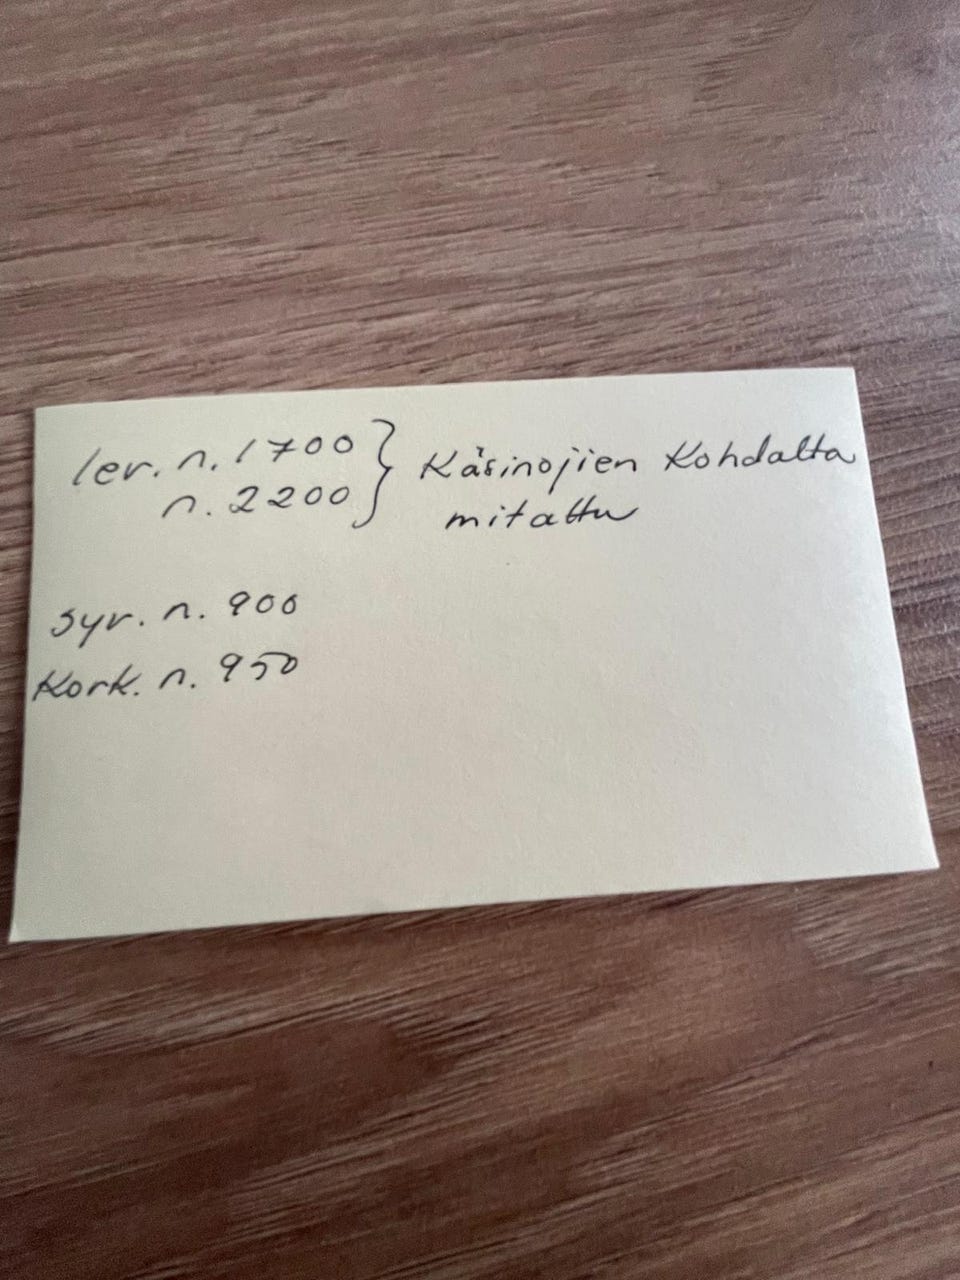 lev. n. 1700 } Käsinojien Kohdalta
n. 2200 } mitattu
syv. n. 900
Kork. n. 950